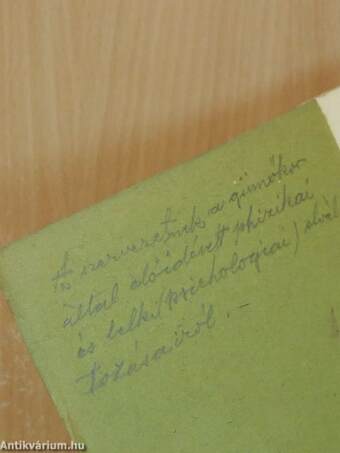 Az szervezetnek a gümőkor
által előidézett phizikai
és lelki (psichologiai) elvál
tozásairól. –
Antikvárium.hu